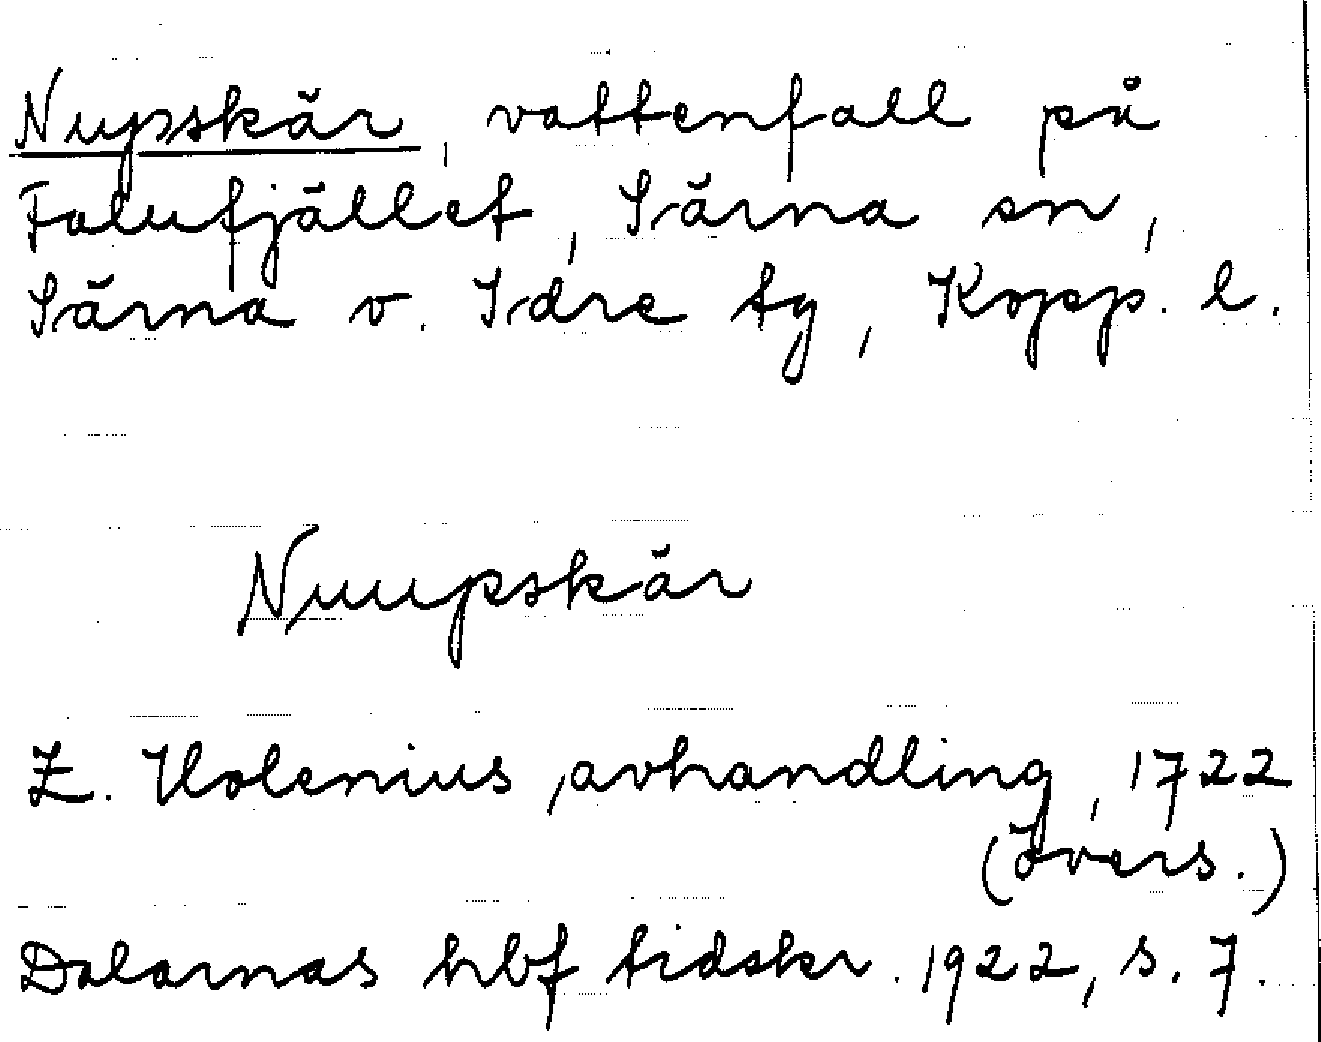 Nupskär, vattenfall på
Falufjället, Särna sn,
Särna o. Idre tg, Kopp. l.
Nuupskär
Z. Holenius, avhandling, 1722
(övers.)
Dalarnas hbf tidskr. 1922, s. 7.